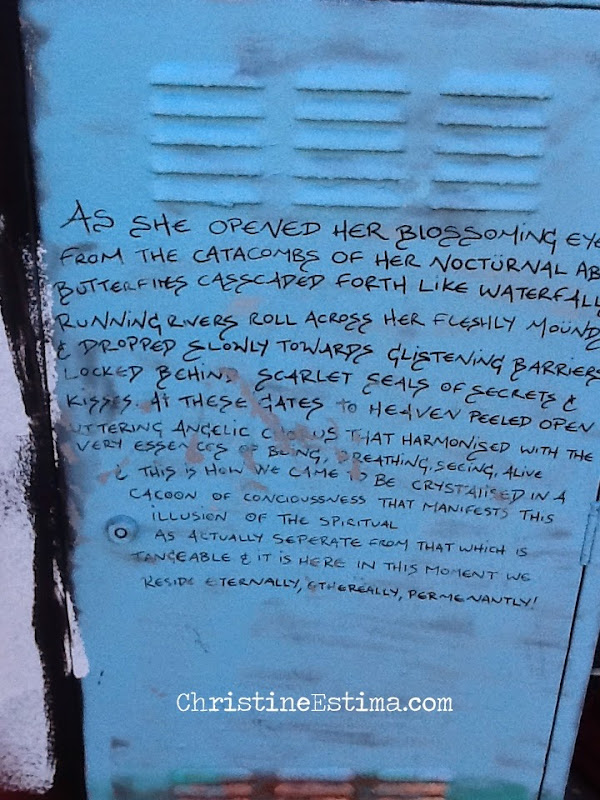 AS SHE OPENED HER BLOSSOMING EYE
FROM THE CATACOMBS OF HER NOCTÜRNAL AB
BUTTERFLIES CASSCADED FORTH LIKE WATERFALL
RUNNING RIVERS ROLL ACROSS HER FLESHLY MOUNDS
& DROPPED SLOWLY TOWARDS GLISTENING BARRIERS
LOCKED BEHIND SCARLET SEALS OF SECRETS &
KISSES. AT THESE GATES TO HEAVEN PEELED OPEN
UTTERING ANGELIC CHORUS THAT HARMONISED WITH THE
VERY ESSENCES OF BEING, BREATHING, SEEING, ALIVE
& THIS IS HOW WE CAME TO BE CRYSTALISED IN A
CACOON OF CONCIOUSSNESS THAT MANIFESTS THIS
ILLUSION OF THE SPIRITUAL
AS ACTUALLY SEPERATE FROM THAT WHICH IS
TANGEABLE & IT IS HERE IN THIS MOMENT WE
RESIDE ETERNALLY, ETHEREALLY, PERMENANTLY!
ChristineEstima.com